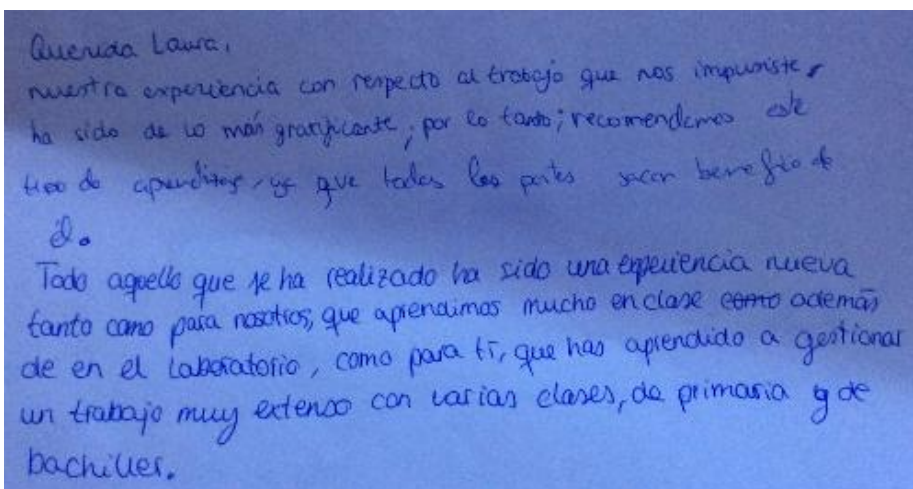 Querida Laura,
nuestra experiencia con respecto al trabajo que nos impusiste,
ha sido de lo más gratificante, por lo tanto; recomendamos este
tipo de aprendizaje, ya que todas las partes sacan beneficio de
él.
Todo aquello que se ha realizado ha sido una experiencia nueva
tanto como para nosotros, que aprendimos mucho en clase como además
de en el laboratorio, como para ti, que has aprendido a gestionar
un trabajo muy extenso con varias clases, de primaria y de
bachiller.